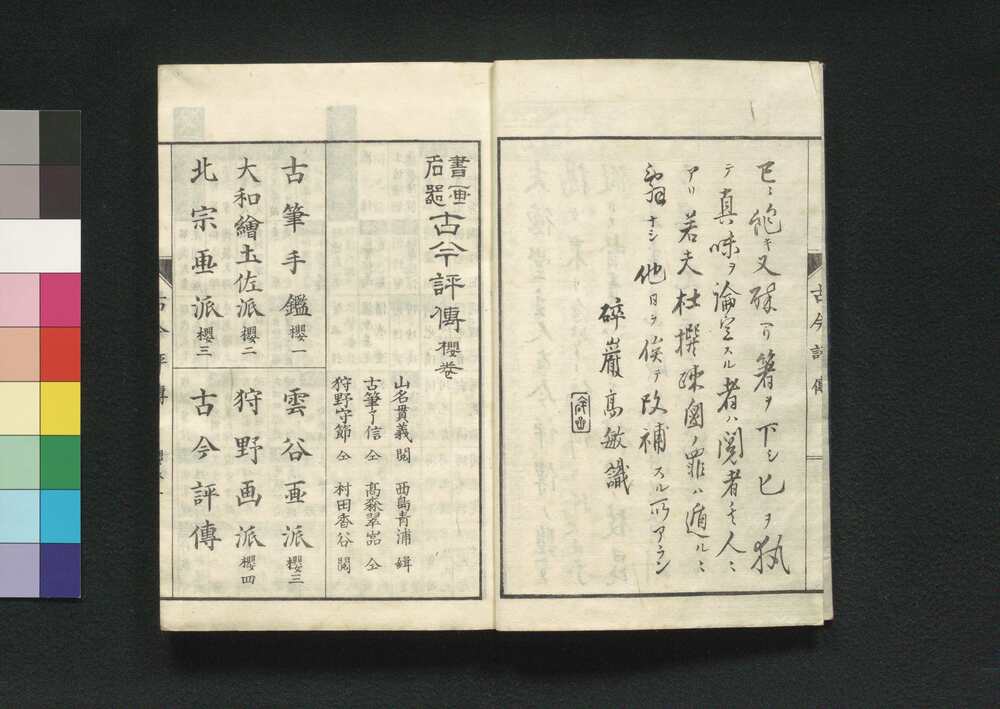 テ真味ヲ論定スル者ハ閲者其人ニ
アリ若夫杜撰疎図ノ罪ハ遁ルニ
ナシ他日ヲ俟テ改補スル所アラン
碎巖高敏識
古今評傳
書画古今評傳 櫻巻
山名貫義 閲 西島青浦 緝
古筆了信 仝 髙森翠岩 仝
狩野守節 仝 村田香谷 閲
古筆手鑑 櫻一
雲谷画派 櫻三
大和繪土佐派 櫻二
狩野画派 櫻四
北宗画派 櫻三
古今評傳
古今評傳